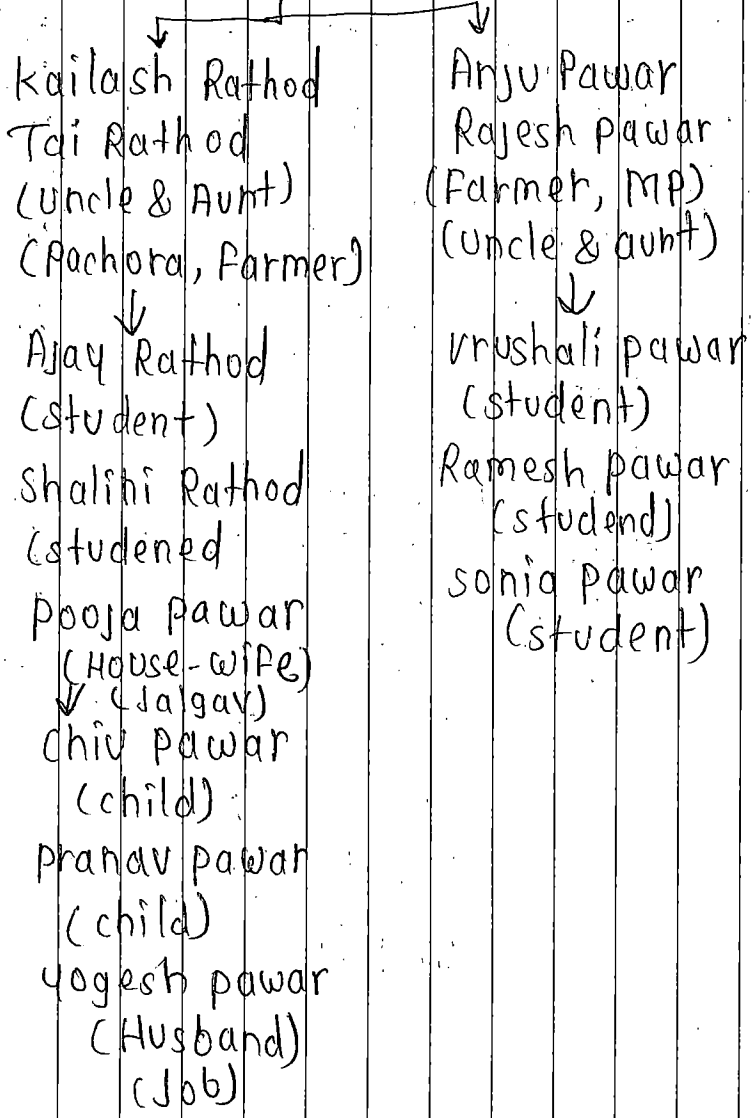 Kailash Rathod
Tai Rathod
(uncle & Aunt)
(Pachora, Farmer)
Ajay Rathod
(student)
Shalini Rathod
(studened
Pooja Pawar
(House-wife)
(Jalgav)
Chiu Pawar
(child)
Pranav Pawar
(child)
Yogesh Pawar
(Husband)
(Job)
Anju Pawar
Rajesh Pawar
(Farmer, MP)
(uncle & aunt)
Vrushali Pawar
(student)
Ramesh Pawar
(studend)
Sonia Pawar
(student)